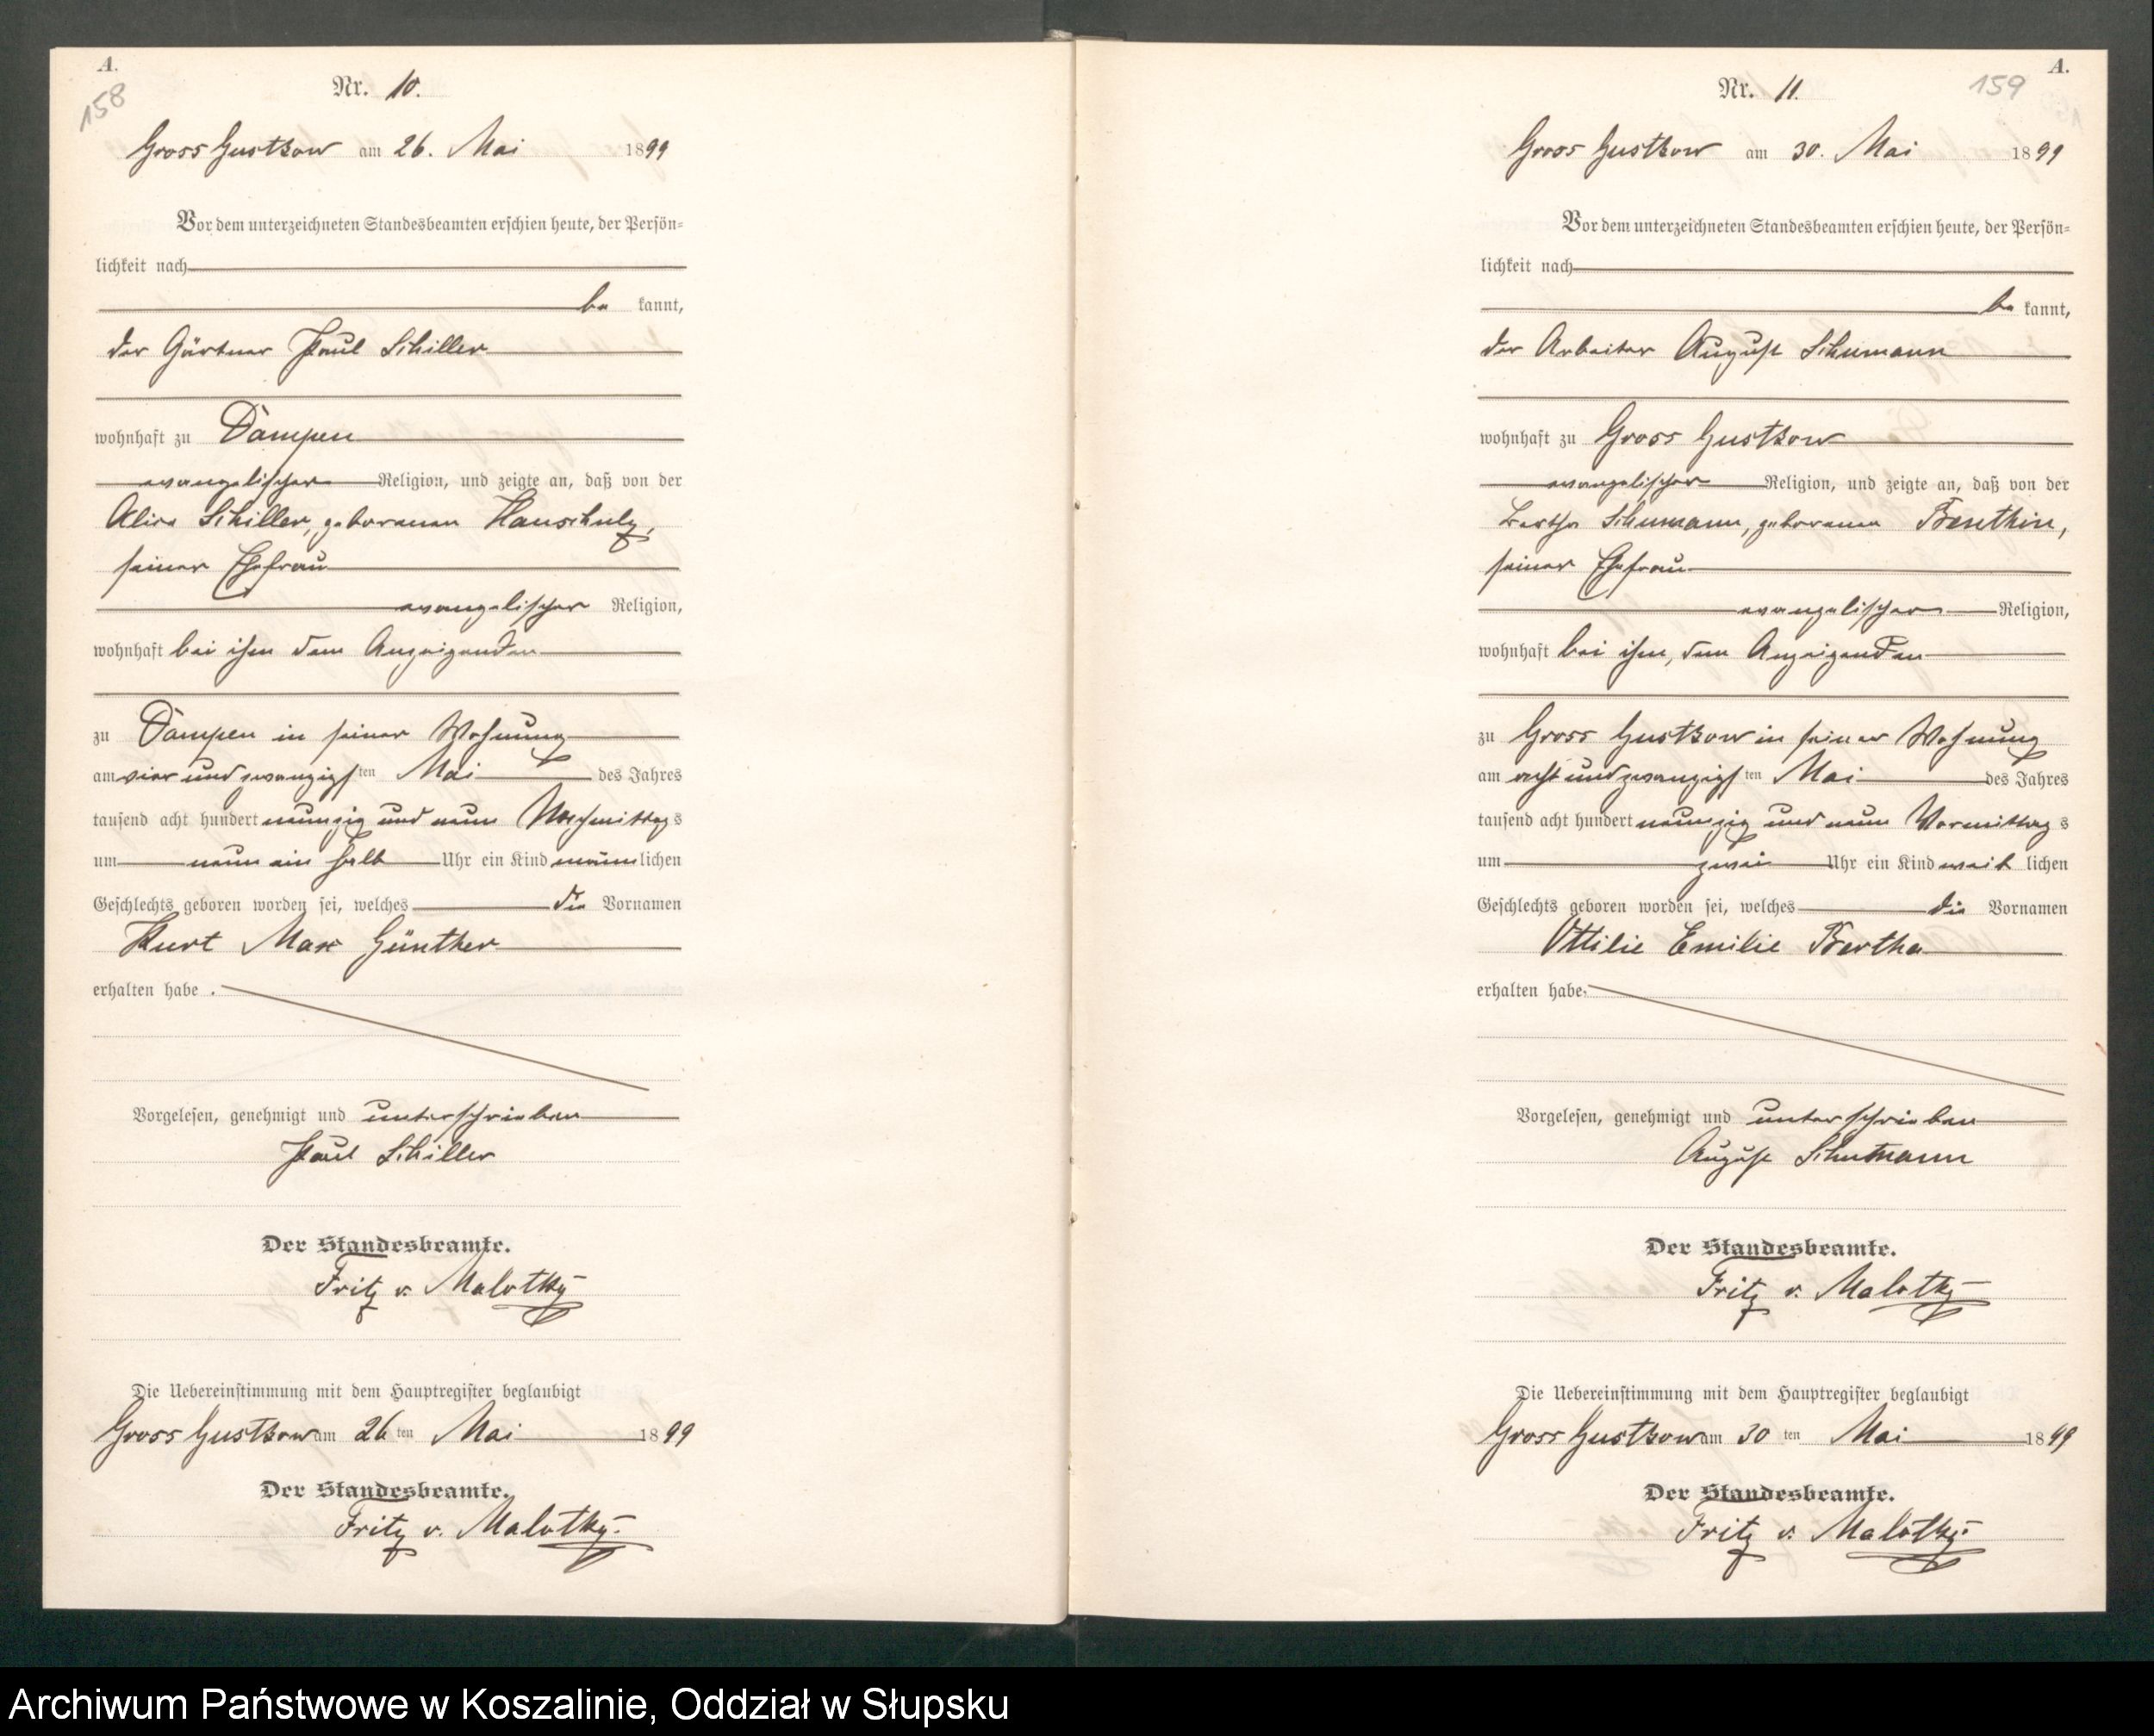 A.
158
Nr. 10.
Gross Gustkow am 26. Mai 1899
Vor dem unterzeichneten Standesbeamten erschien heute, der Persön=
lichkeit nach
be kannt,
der Gärtner Paul Schiller
wohnhaft zu Dampen
evangelischer Religion, und zeigte an, daß von der
Alice Schiller, geborenen Hauschulz,
seiner Ehefrau
evangelischer Religion,
wohnhaft bei ihm dem Anzeigenden
zu Dampen in seiner Wohnung
am vier und zwanzigsten Mai des Jahres
tausend acht hundert neunzig und neun Nachmittags
um neun ein halb Uhr ein Kind männlichen
Geschlechts geboren worden sei, welches die Vornamen
Kurt Max Günther
erhalten habe.
Vorgelesen, genehmigt und unterschrieben
Paul Schiller
Der Standesbeamte.
Fritz v. Malotky
Die Uebereinstimmung mit dem Hauptregister beglaubigt
Gross Gustkow am 26ten Mai 1899
Der Standesbeamte.
Fritz v. Malotky.
A.
159
Nr. 11.
Gross Gustkow am 30. Mai 1899
Vor dem unterzeichneten Standesbeamten erschien heute, der Persön=
lichkeit nach
be kannt,
der Arbeiter August Schumann
wohnhaft zu Gross Gustkow
evangelischer Religion, und zeigte an, daß von der
Bertha Schumann, geborenen Benthin,
seiner Ehefrau
evangelischer Religion,
wohnhaft bei ihm, dem Anzeigenden
zu Gross Gustkow in seiner Wohnung
am acht und zwanzigsten Mai des Jahres
tausend acht hundert neunzig und neun Vormittags
um zwei Uhr ein Kind weib lichen
Geschlechts geboren worden sei, welches die Vornamen
Ottilie Emilie Bertha
erhalten habe.
Vorgelesen, genehmigt und unterschrieben
August Schumann
Der Standesbeamte.
Fritz v. Malotky
Die Uebereinstimmung mit dem Hauptregister beglaubigt
Gross Gustkow am 30ten Mai 1899
Der Standesbeamte.
Fritz v. Malotky.
Archiwum Państwowe w Koszalinie, Oddział w Słupsku